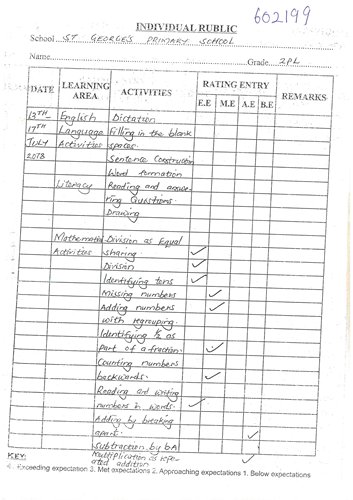 602199
INDIVIDUAL RUBLIC
School ST GEORGE'S PRIMARY SCHOOL
Name Grade 2PL
DATE LEARNING AREA ACTIVITIES RATING ENTRY REMARKS
E.E M.E A.E B.E
13TH English Dictation
17TH Language filling in the blank
JULY Activities spaces.
2018 Sentence Construction
Word formation
Literacy Reading and answe-
ring Questions
Drawing
Mathematics Division as Equal
Activities sharing. ✓
Division ✓
Identifying tens ✓
Missing numbers ✓
Adding numbers ✓
with regrouping.
Identifying ½ as
part of a fraction. ✓
Counting numbers
backwards. ✓
Reading and writing
numbers in words. ✓
Adding by breaking
apart. ✓
Subtraction by
KEY: Multiplication as repe-
ated addition ✓
Exceeding expectation 3. Met expectations 2. Approaching expectations 1. Below expectations